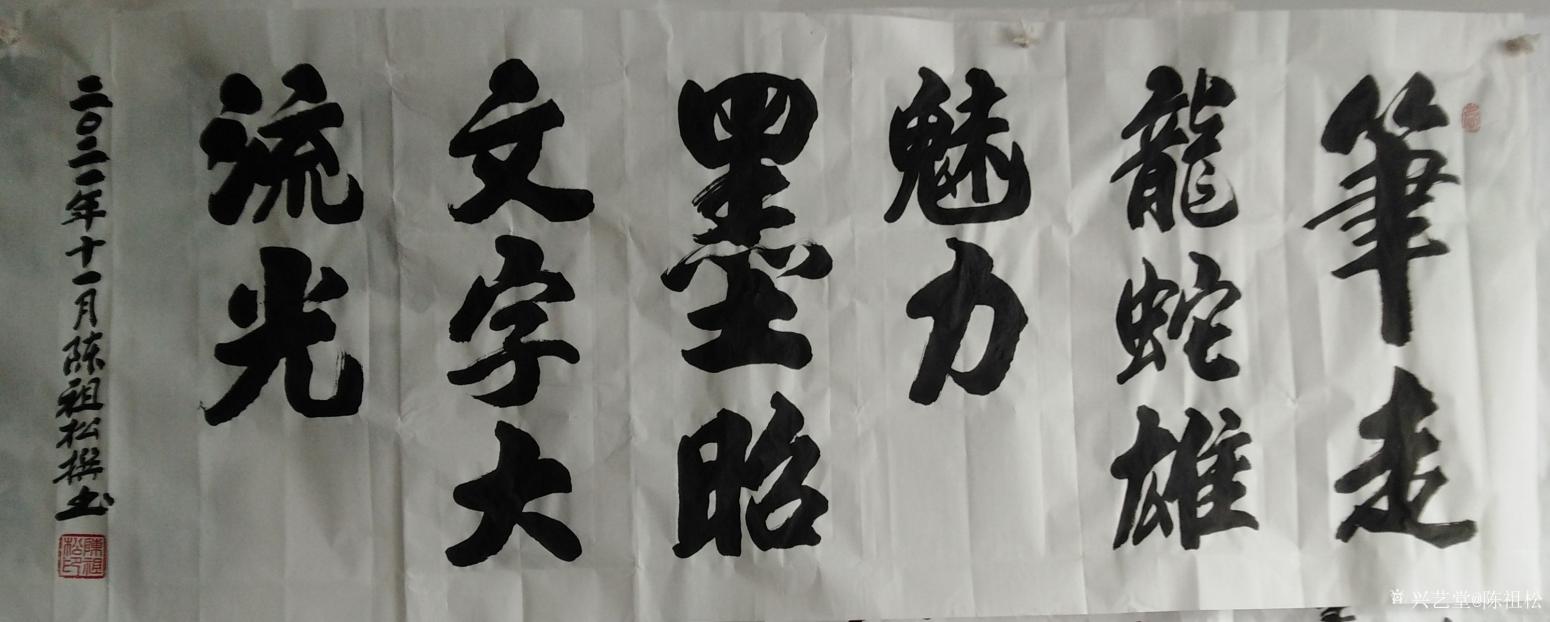 筆走
龍蛇雄
魅力
墨昭
文字大
流光
二〇二一年十一月陈祖松撰书
陳祖松印
兴艺堂@陈祖松